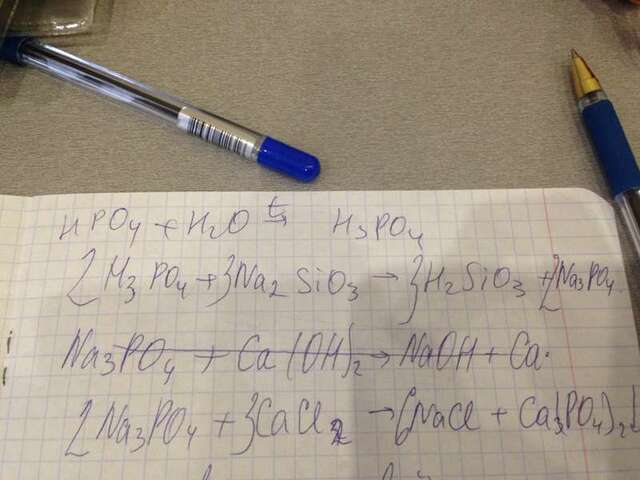 HPO4 + H2O ⇆ H3PO4
2H3PO4 + 3Na2SiO3 → 3H2SiO3 + 2Na3PO4
Na3PO4 + Ca(OH)2 → NaOH + Ca
2Na3PO4 + 3CaCl2 → 6NaCl + Ca3(PO4)2↓